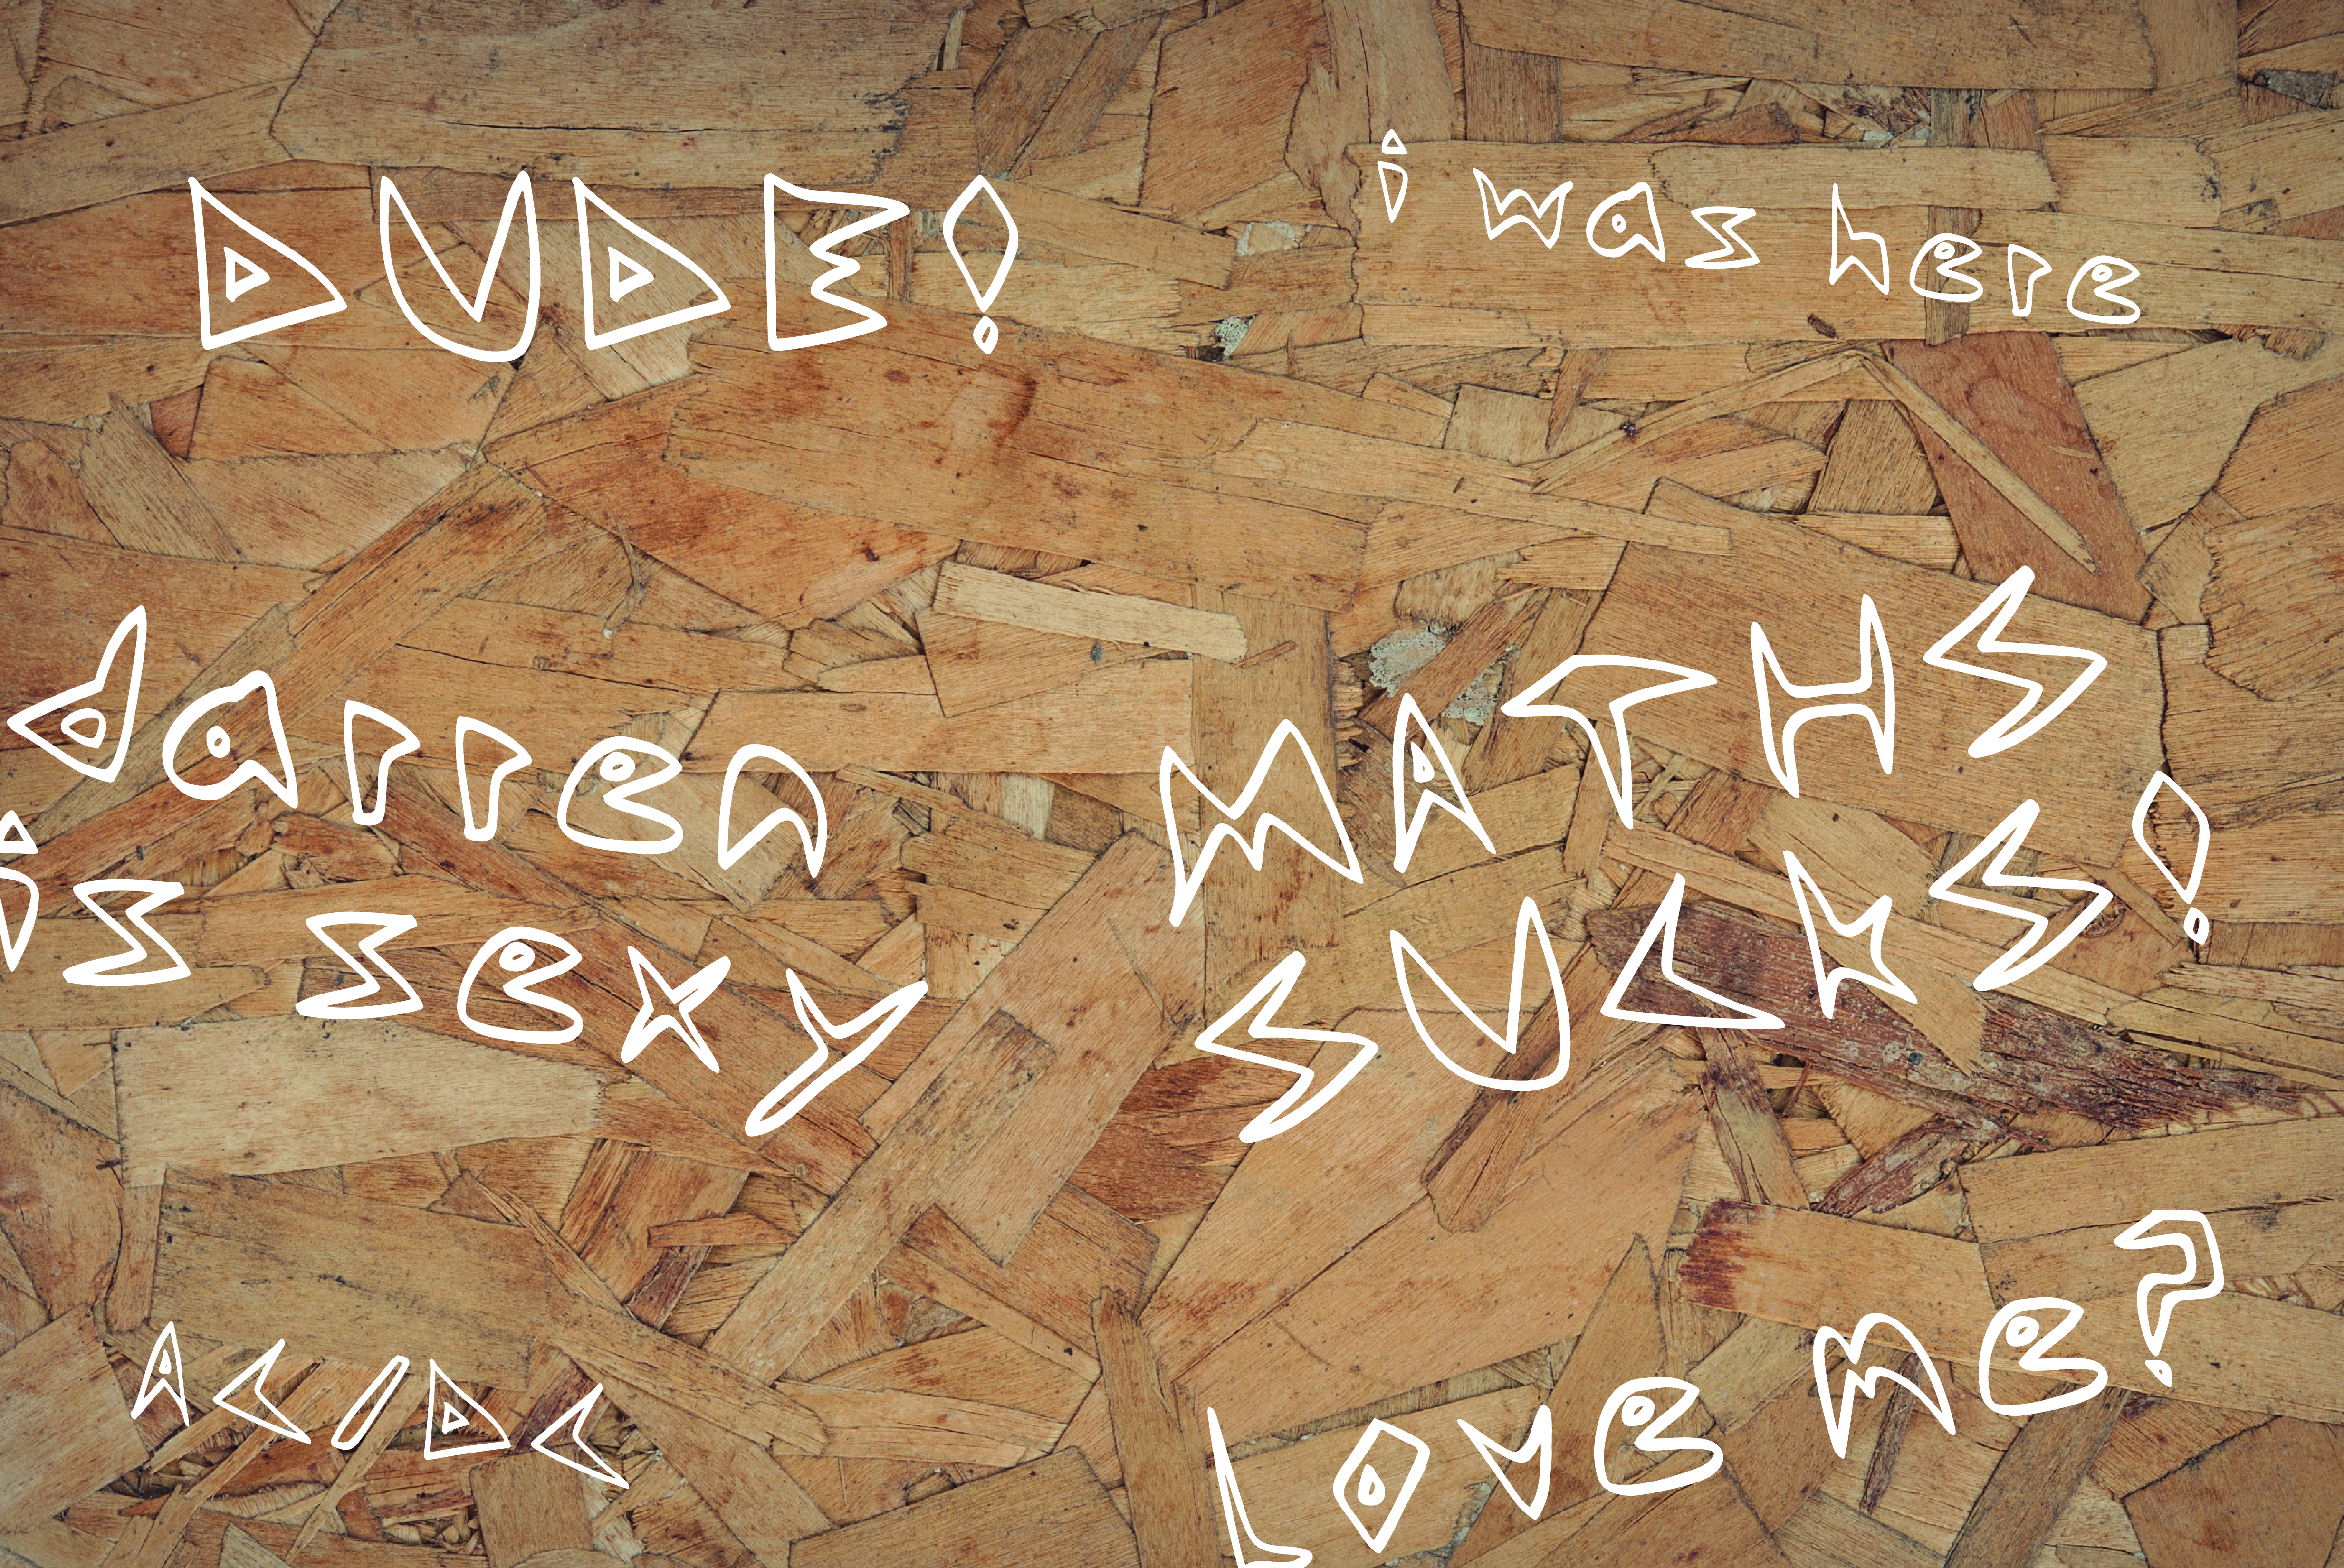 DUDE!
i was here
darren
is sexy
MATHS
SUCKS!
AC/DC
Love me?